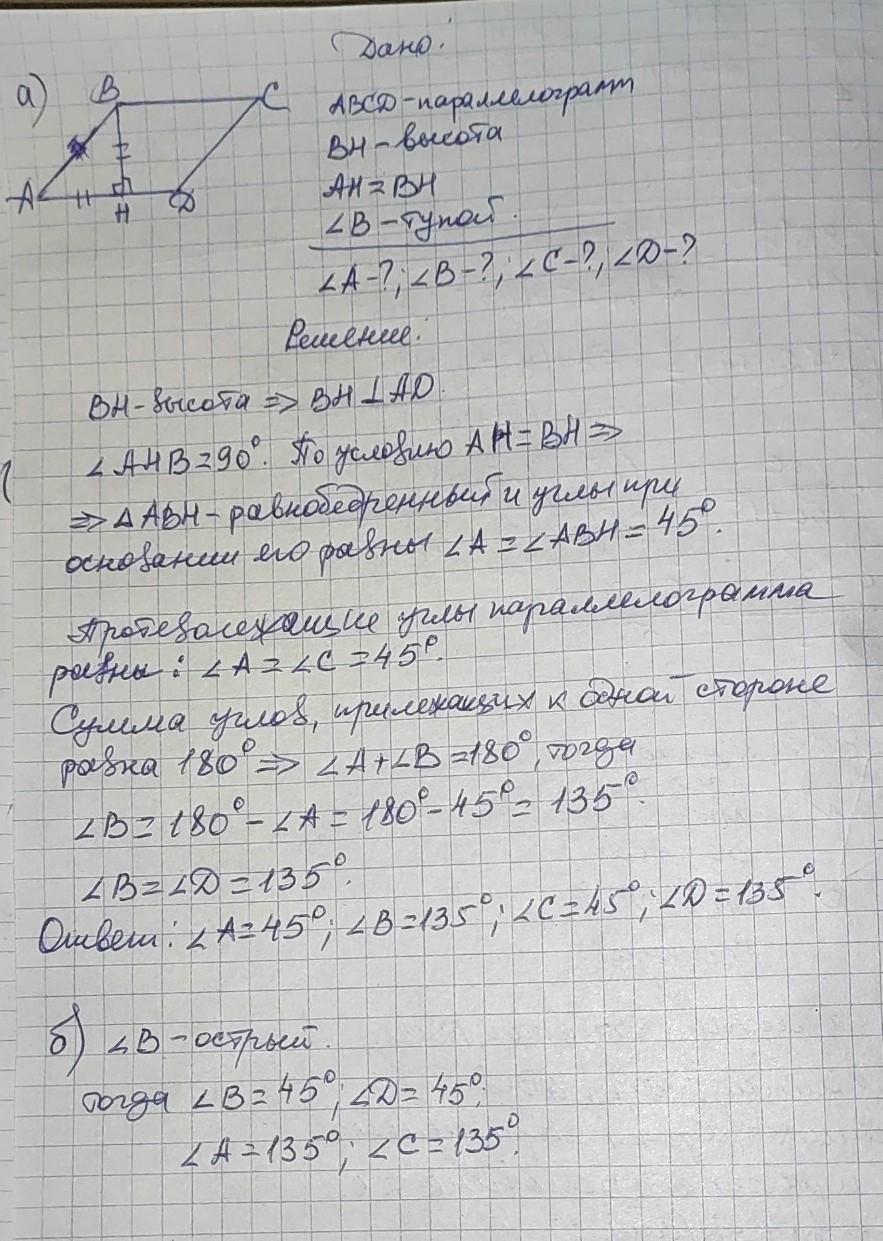 Дано:
а)
B
C
A
H
D
ABCD - параллелограмм
BH - высота
AH = BH
∠B - тупой.
∠A-?; ∠B-?; ∠C-?; ∠D-?
Решение:
BH - высота => BH ⊥ AD.
∠AHB = 90°. По условию AH = BH =>
=> ΔABH - равнобедренный и углы при
основании его равны ∠A = ∠ABH = 45°.
Противолежащие углы параллелограмма
равны: ∠A = ∠C = 45°.
Сумма углов, прилежащих к одной стороне
равна 180° => ∠A + ∠B = 180°, тогда
∠B = 180° - ∠A = 180° - 45° = 135°.
∠B = ∠D = 135°.
Ответ: ∠A = 45°; ∠B = 135°; ∠C = 45°; ∠D = 135°.
б) ∠B - острый.
тогда ∠B = 45°; ∠D = 45°;
∠A = 135°; ∠C = 135°.